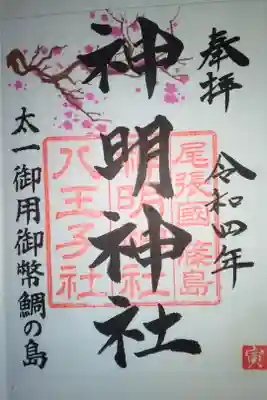 奉拝
令和四年
尾張國篠島
神明神社
神明神社
八王子社
太一御用御幣鯛の島
寅